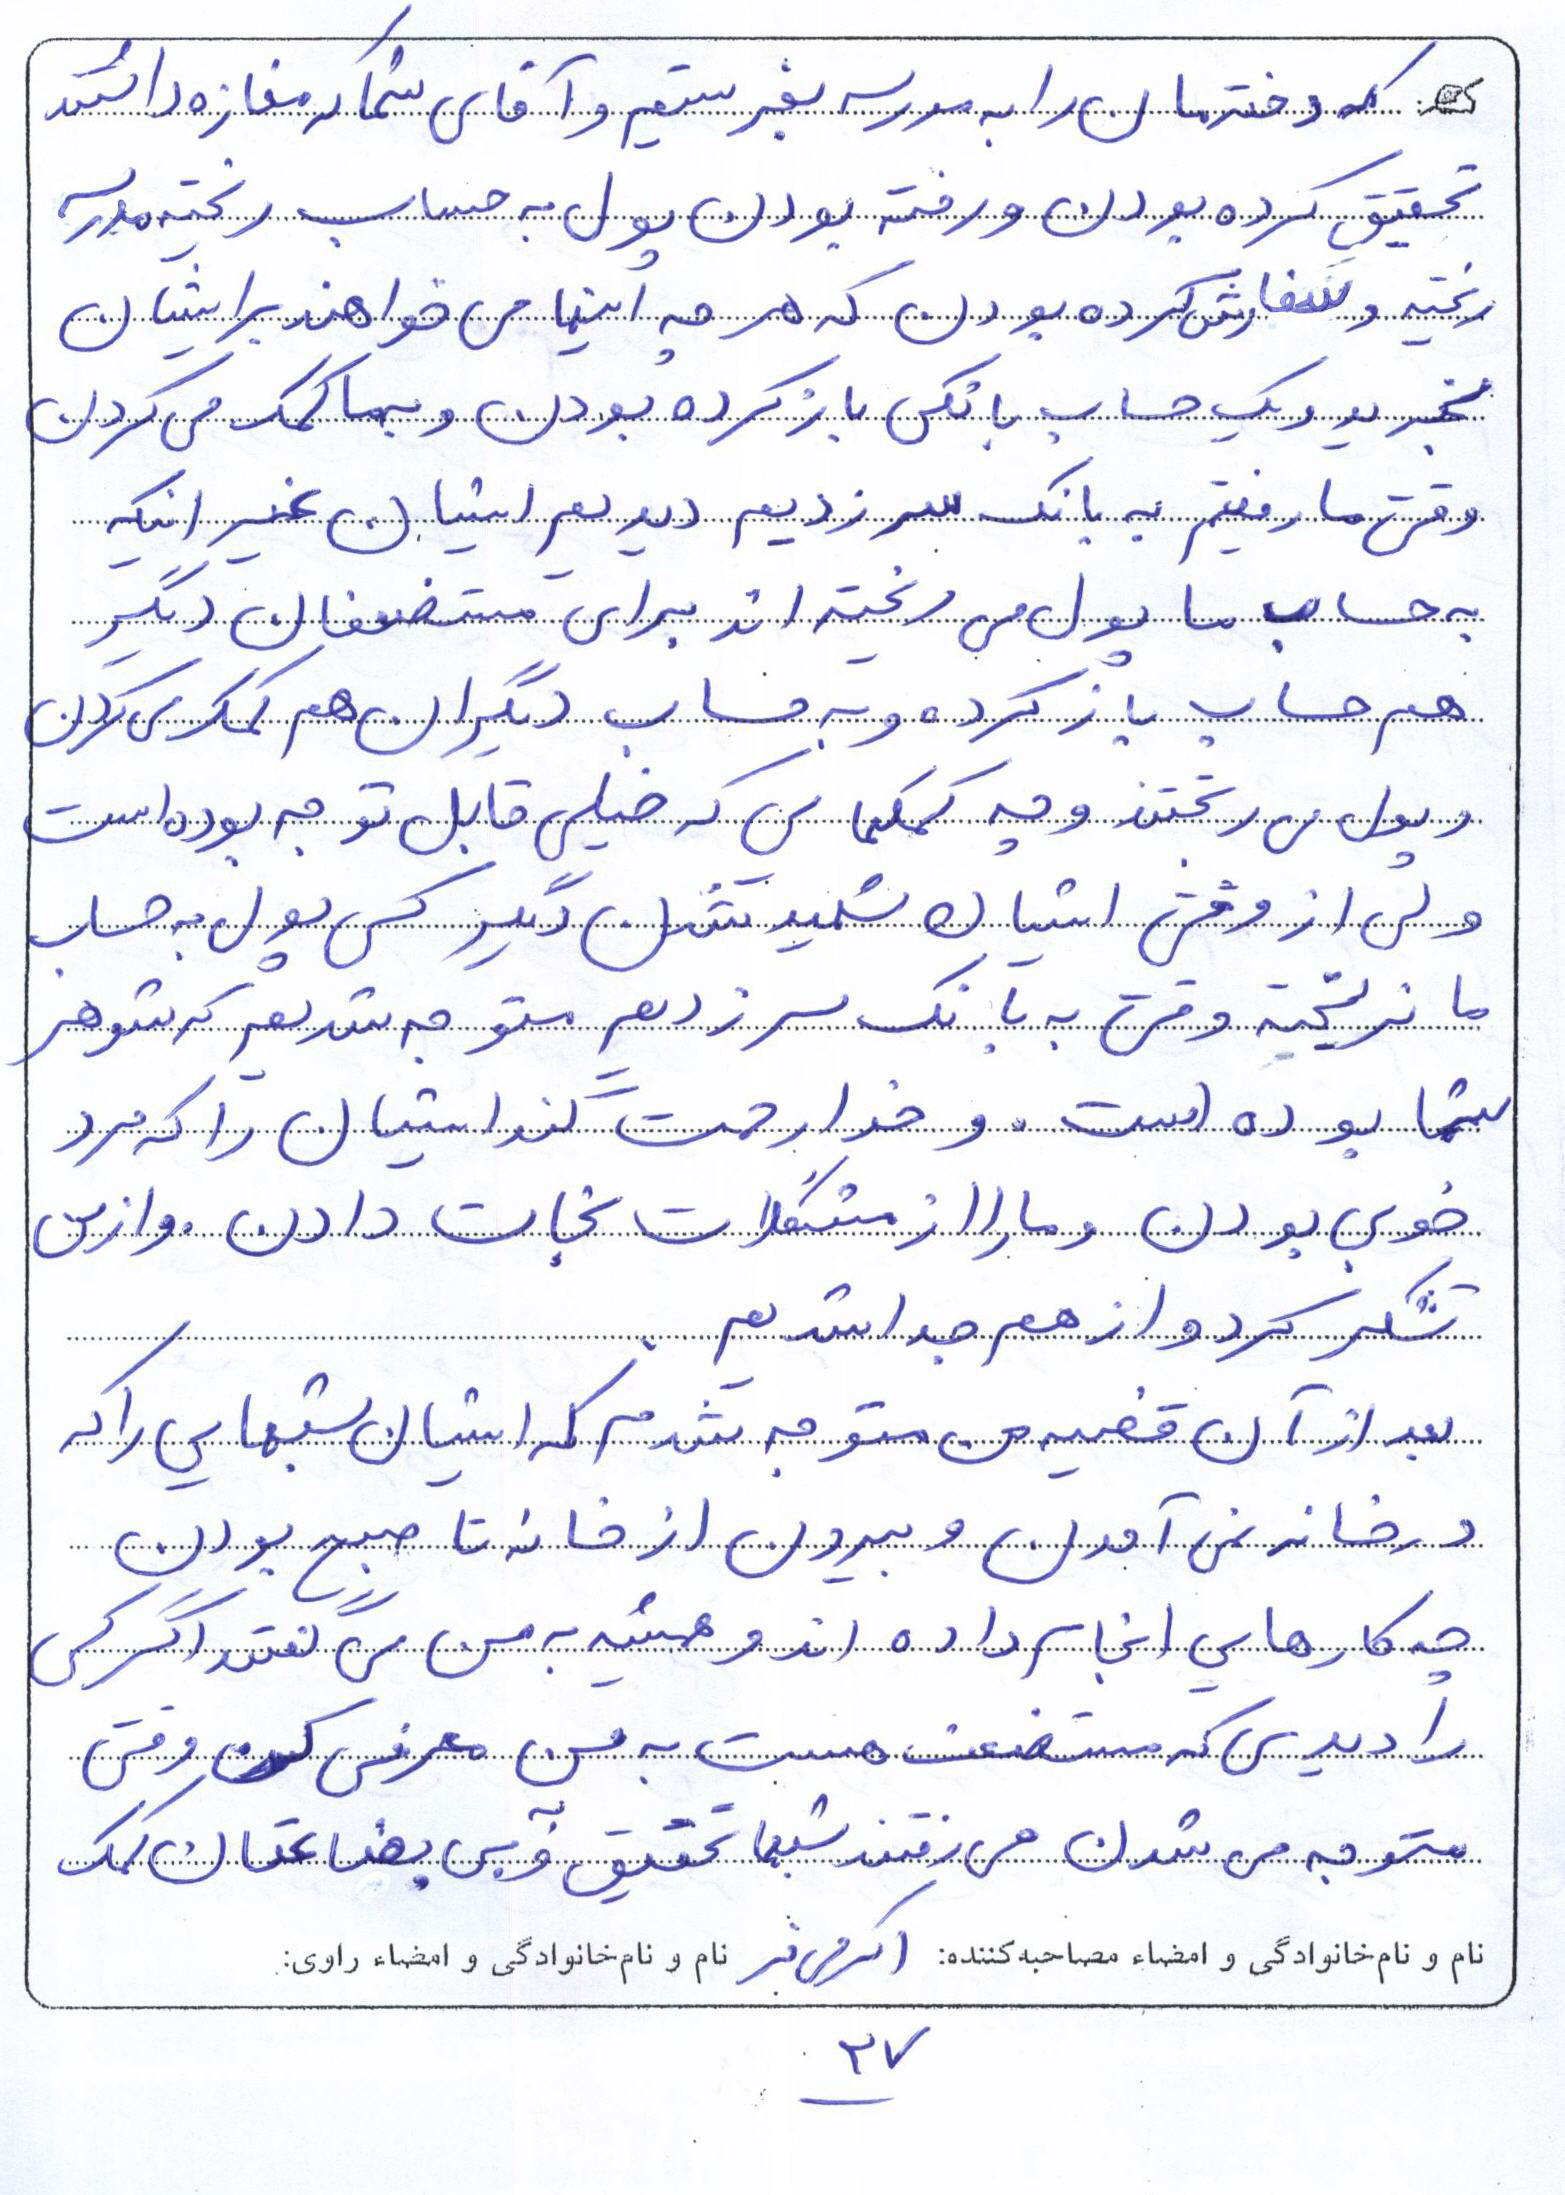 که دخترمان را به مدرسه بفرستیم و آقای شما که مغازه داشتند
تحقیق کرده بودن و رفته بودن پول به حساب ریخته مدرسه
ریخته و سفارش کرده بودن که هر چه اینها می خواهند برایشان
بخرید و یک حساب بانکی باز کرده بودن و بهما کمک می کردن
وقتی ما رفتیم به بانک سر زدیم دیدیم ایشان غیر اینکه
به حساب ما پول می ریخته اند برای مستضعفان دیگر
هم حساب باز کرده و به حساب دیگران هم کمک می کردن
و پول می ریختند و چه کمکهایی که خیلی قابل توجه بوده است
ولی از وقتی ایشان شهید شدن دیگر کسی پول به حساب
ما نریخته وقتی به بانک سر زدیم متوجه شدیم که شوهر
شما بوده است. و خدا رحمت کند ایشان را که مرد
خوبی بودن و ما را از مشکلات نجات دادن. و از من
تشکر کرد و از هم جدا شدیم.
بعد از آن قضیه من متوجه شدم که ایشان شبهایی را که
در خانه نمی آمدن و بیرون از خانه تا صبح بودن
چه کارهایی انجام داده اند و همیشه به من می گفتند اگر کسی
را دیدی که مستضعف هست به من معرفی کن وقتی
متوجه می شدن می رفتند شبها تحقیق و به بی بضاعتان کمک
نام و نام‌خانوادگی و امضاء مصاحبه‌کننده: نام و نام‌خانوادگی و امضاء راوی:
۲۷